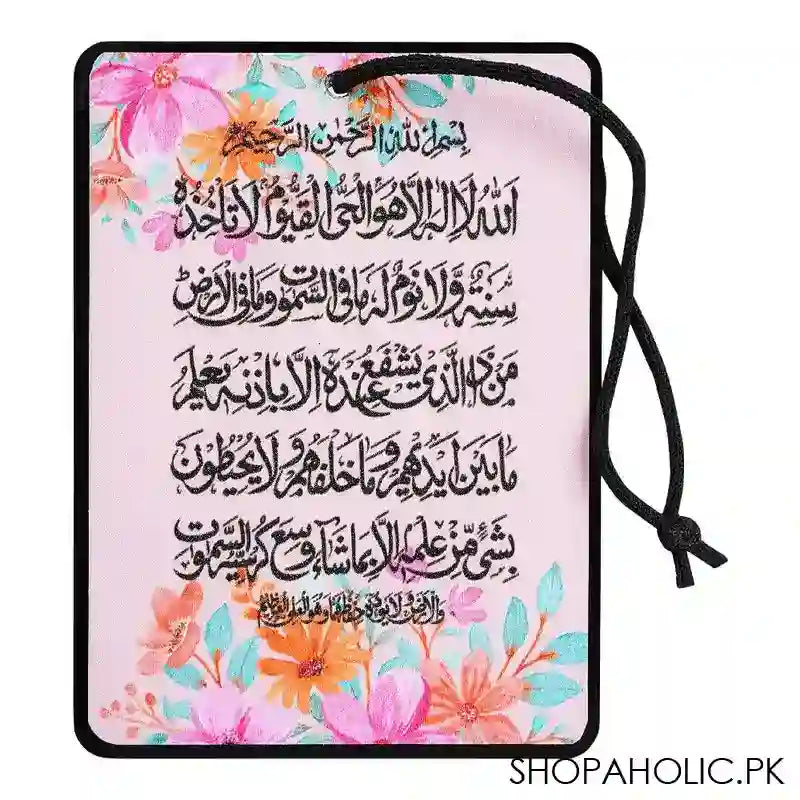 بِسْمِ اللهِ الرَّحْمٰنِ الرَّحِيْمِ
اَللهُ لَا اِلٰهَ اِلَّا هُوَ الْحَیُّ الْقَيُّوْمُ لَا تَاْخُذُهٗ
سِنَةٌ وَّلَا نَوْمٌ لَهٗ مَا فِی السَّمٰوٰتِ وَمَا فِی الْاَرْضِ
مَنْ ذَا الَّذِیْ يَشْفَعُ عِنْدَهٗ اِلَّا بِاِذْنِهٖ يَعْلَمُ
مَا بَيْنَ اَيْدِيْهِمْ وَمَا خَلْفَهُمْ وَلَا يُحِيْطُوْنَ
بِشَیْءٍ مِّنْ عِلْمِهٖ اِلَّا بِمَا شَآءَ وَسِعَ كُرْسِيُّهُ السَّمٰوٰتِ
وَالْاَرْضَ وَلَا يَئُوْدُهٗ حِفْظُهُمَا وَهُوَ الْعَلِیُّ الْعَظِيْمُ
SHOPAHOLIC.PK